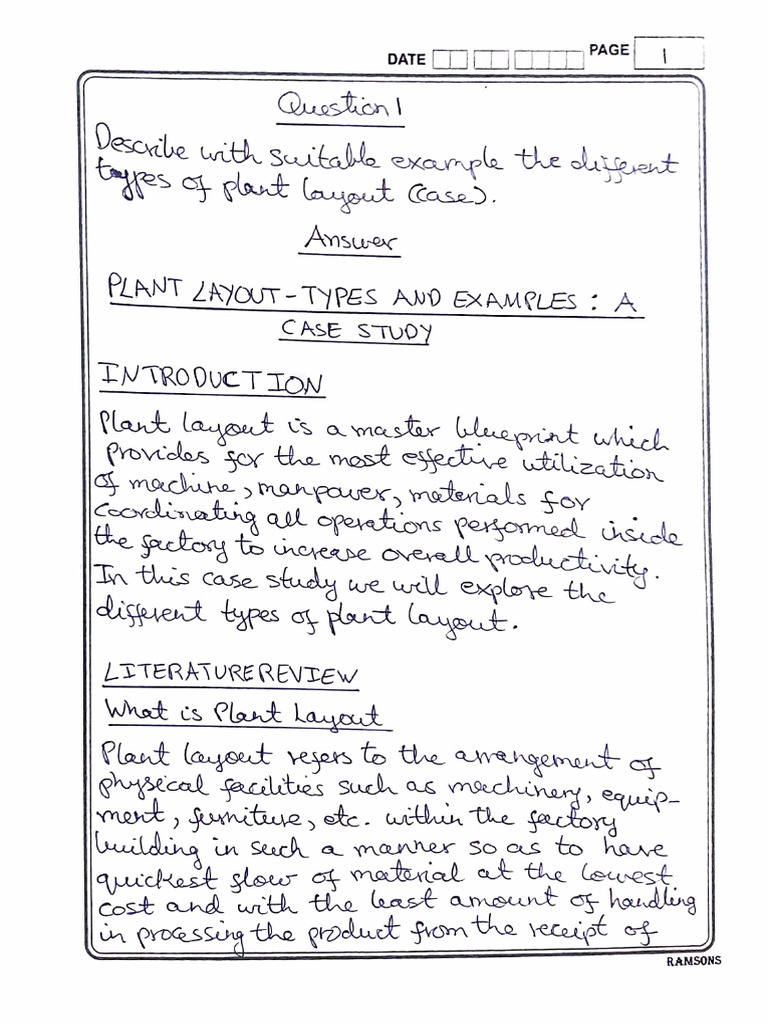 DATE PAGE 1
Question 1
Describe with suitable example the different
types of plant layout (case).
Answer
PLANT LAYOUT - TYPES AND EXAMPLES : A
CASE STUDY
INTRODUCTION
Plant layout is a master blueprint which
provides for the most effective utilization
of machine, manpower, materials for
coordinating all operations performed inside
the factory to increase overall productivity.
In this case study we will explore the
different types of plant layout.
LITERATURE REVIEW
What is Plant Layout
Plant layout refers to the arrangement of
physical facilities such as machinery, equip-
ment, furniture, etc. within the factory
building in such a manner so as to have
quickest flow of material at the lowest
cost and with the least amount of handling
in processing the product from the receipt of
RAMSONS